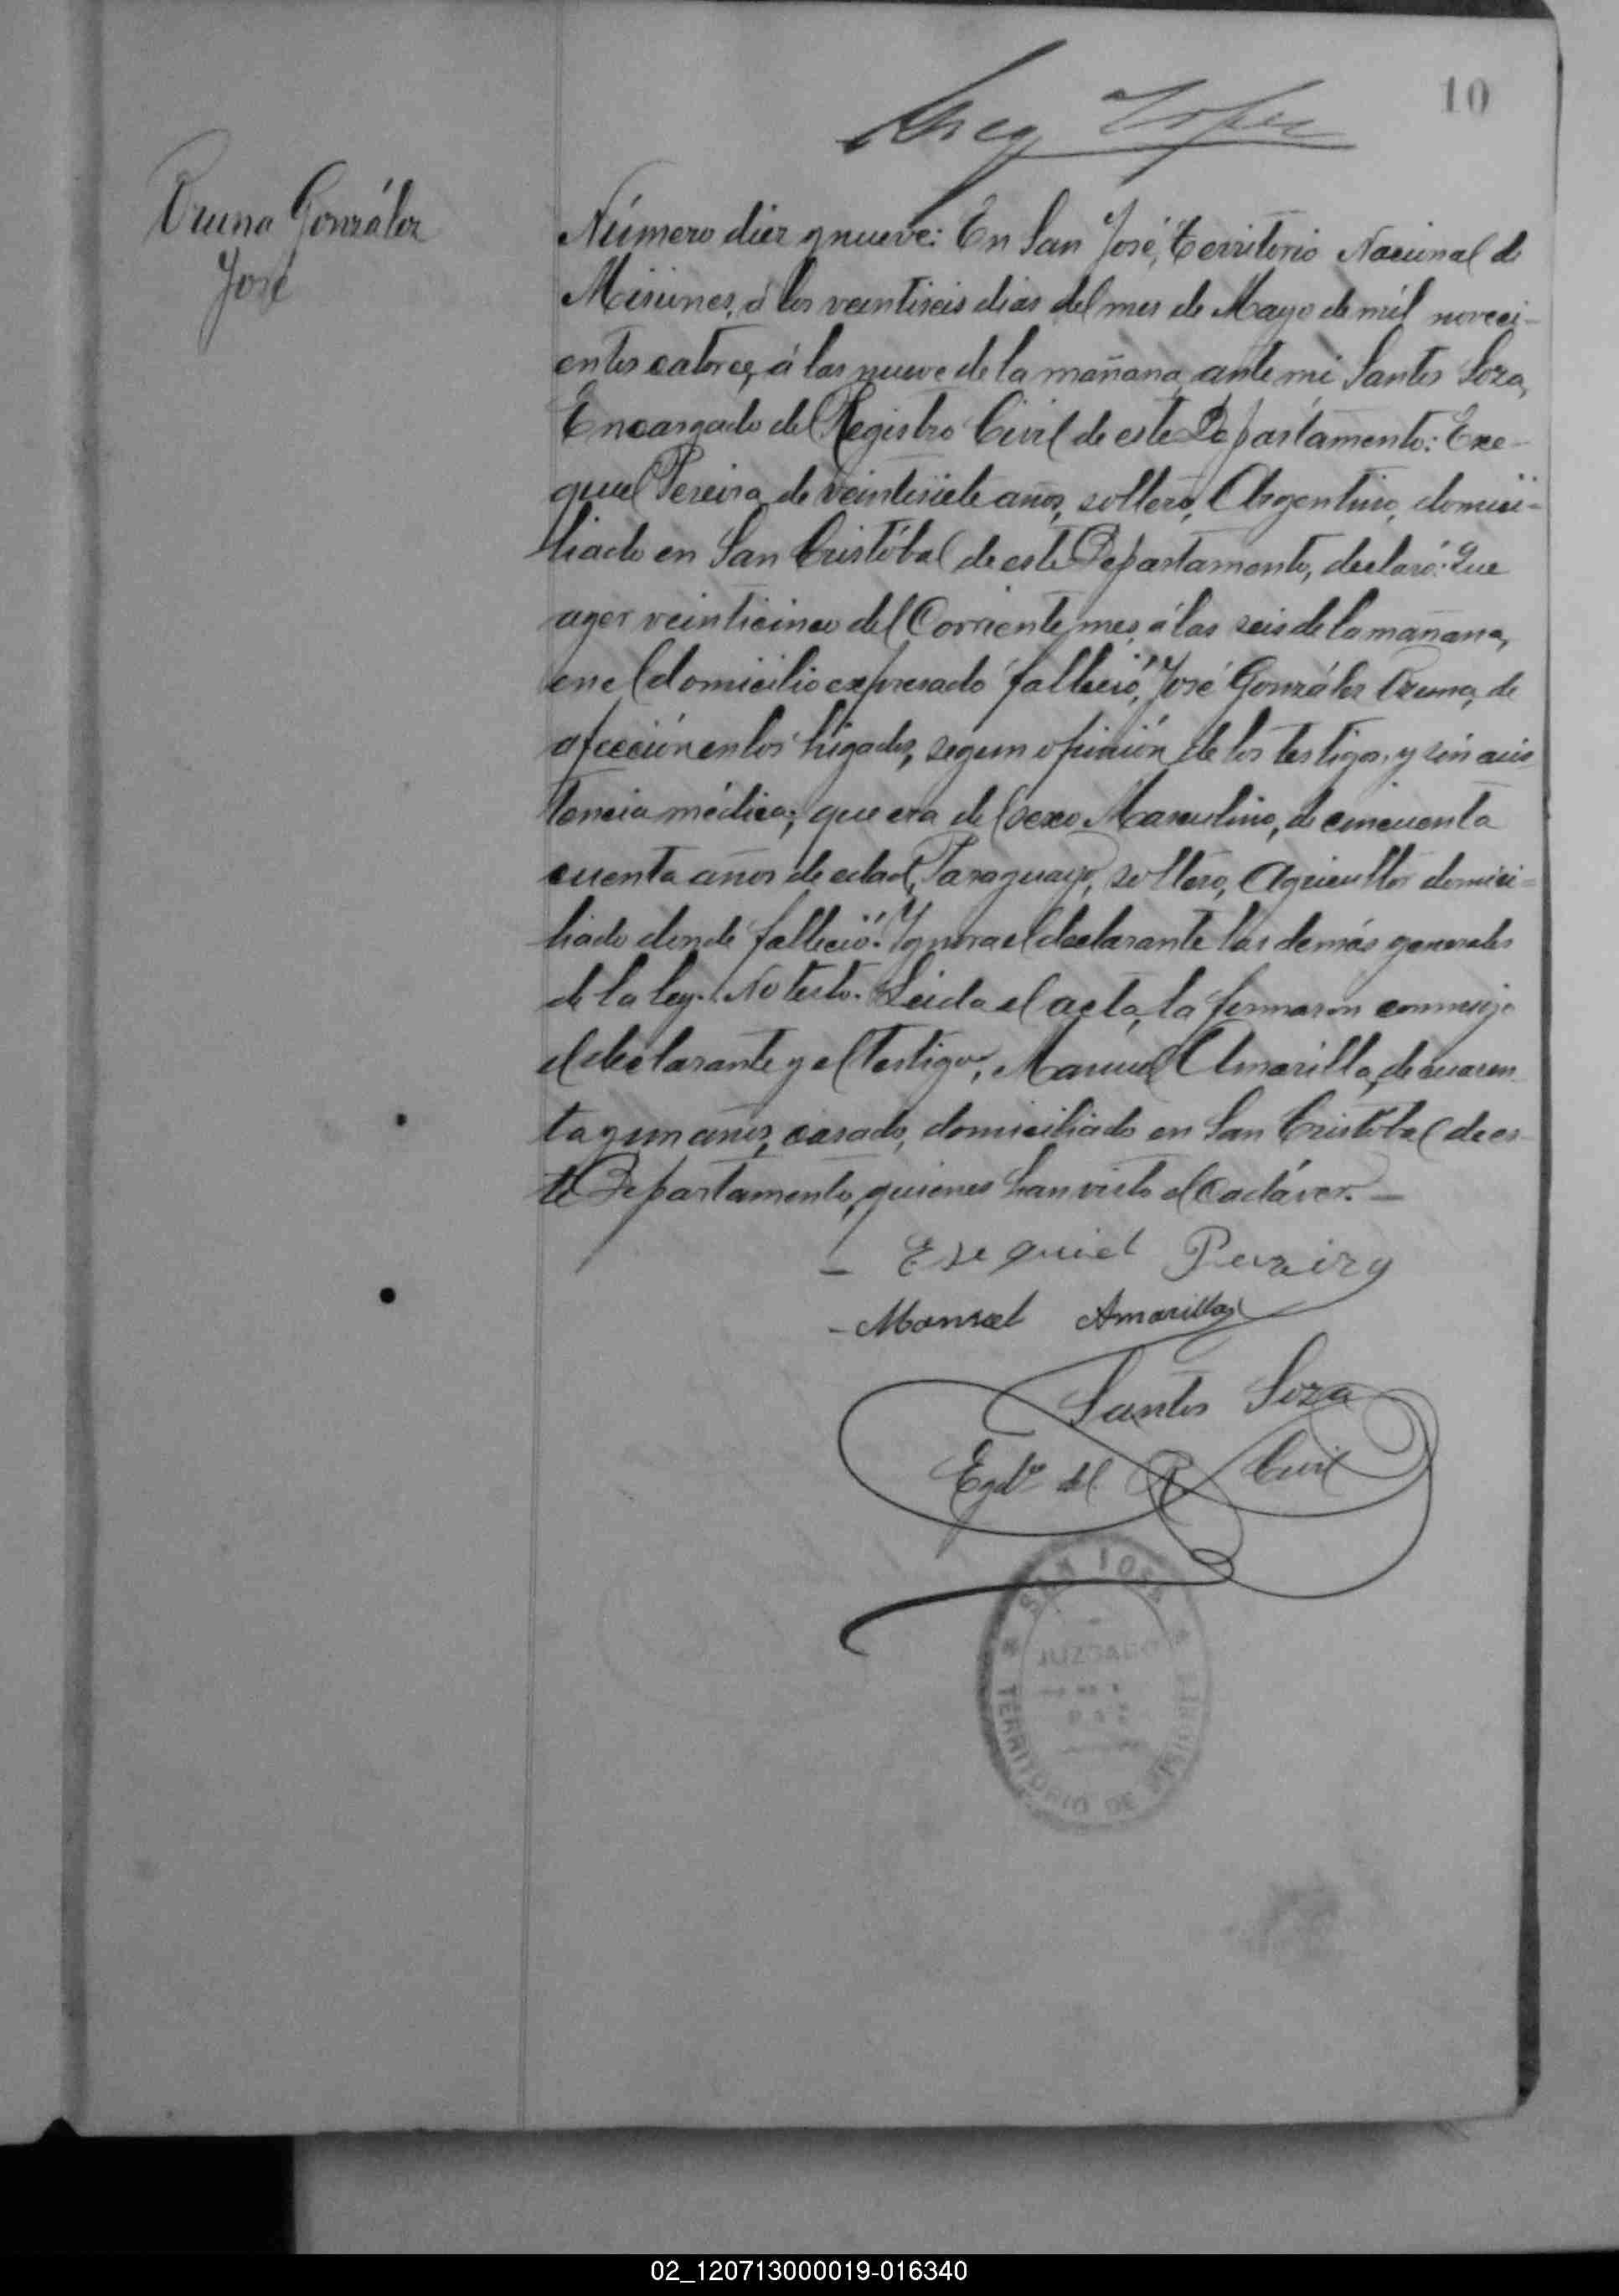 10
Bruno González
José
Número diez y nueve: En San José, Territorio Nacional de
Misiones, á los veintiseis dias del mes de Mayo de mil noveci-
entos catorce, á las nueve de la mañana, ante mi Santos Soza,
Encargado del Registro Civil de este Departamento: Exe-
quiel Pereira, de veintisiete años, soltero, Argentino, domici-
liado en San Cristóbal de este Departamento, declaró: Que
ayer veinticinco del Corriente mes, á las seis de la mañana,
en el domicilio expresado falleció, José González Bruno, de
afección en los hígados, segun opinión de los testigos, y sin asis
tencia médica; que era del sexo Masculino, de cincuenta
cuenta años de edad, Paraguayo, soltero, Agricultor domici-
liado donde falleció. Ygnora el declarante las demás generales
de la ley. No testó. Leida el acta, la firmaron conmigo
el declarante y el testigo, Manuel Amarilla, de cuaren
ta y un años, casado, domiciliado en San Cristóbal de es-
te Departamento, quienes han visto el Cadáver. —
- Esequiel Pereira
- Manuel Amarilla
Santos Soza
Egdo del R Civil
SAN JOSE
JUZGADO
TERRITORIO DE MISIONES
02_120713000019-016340